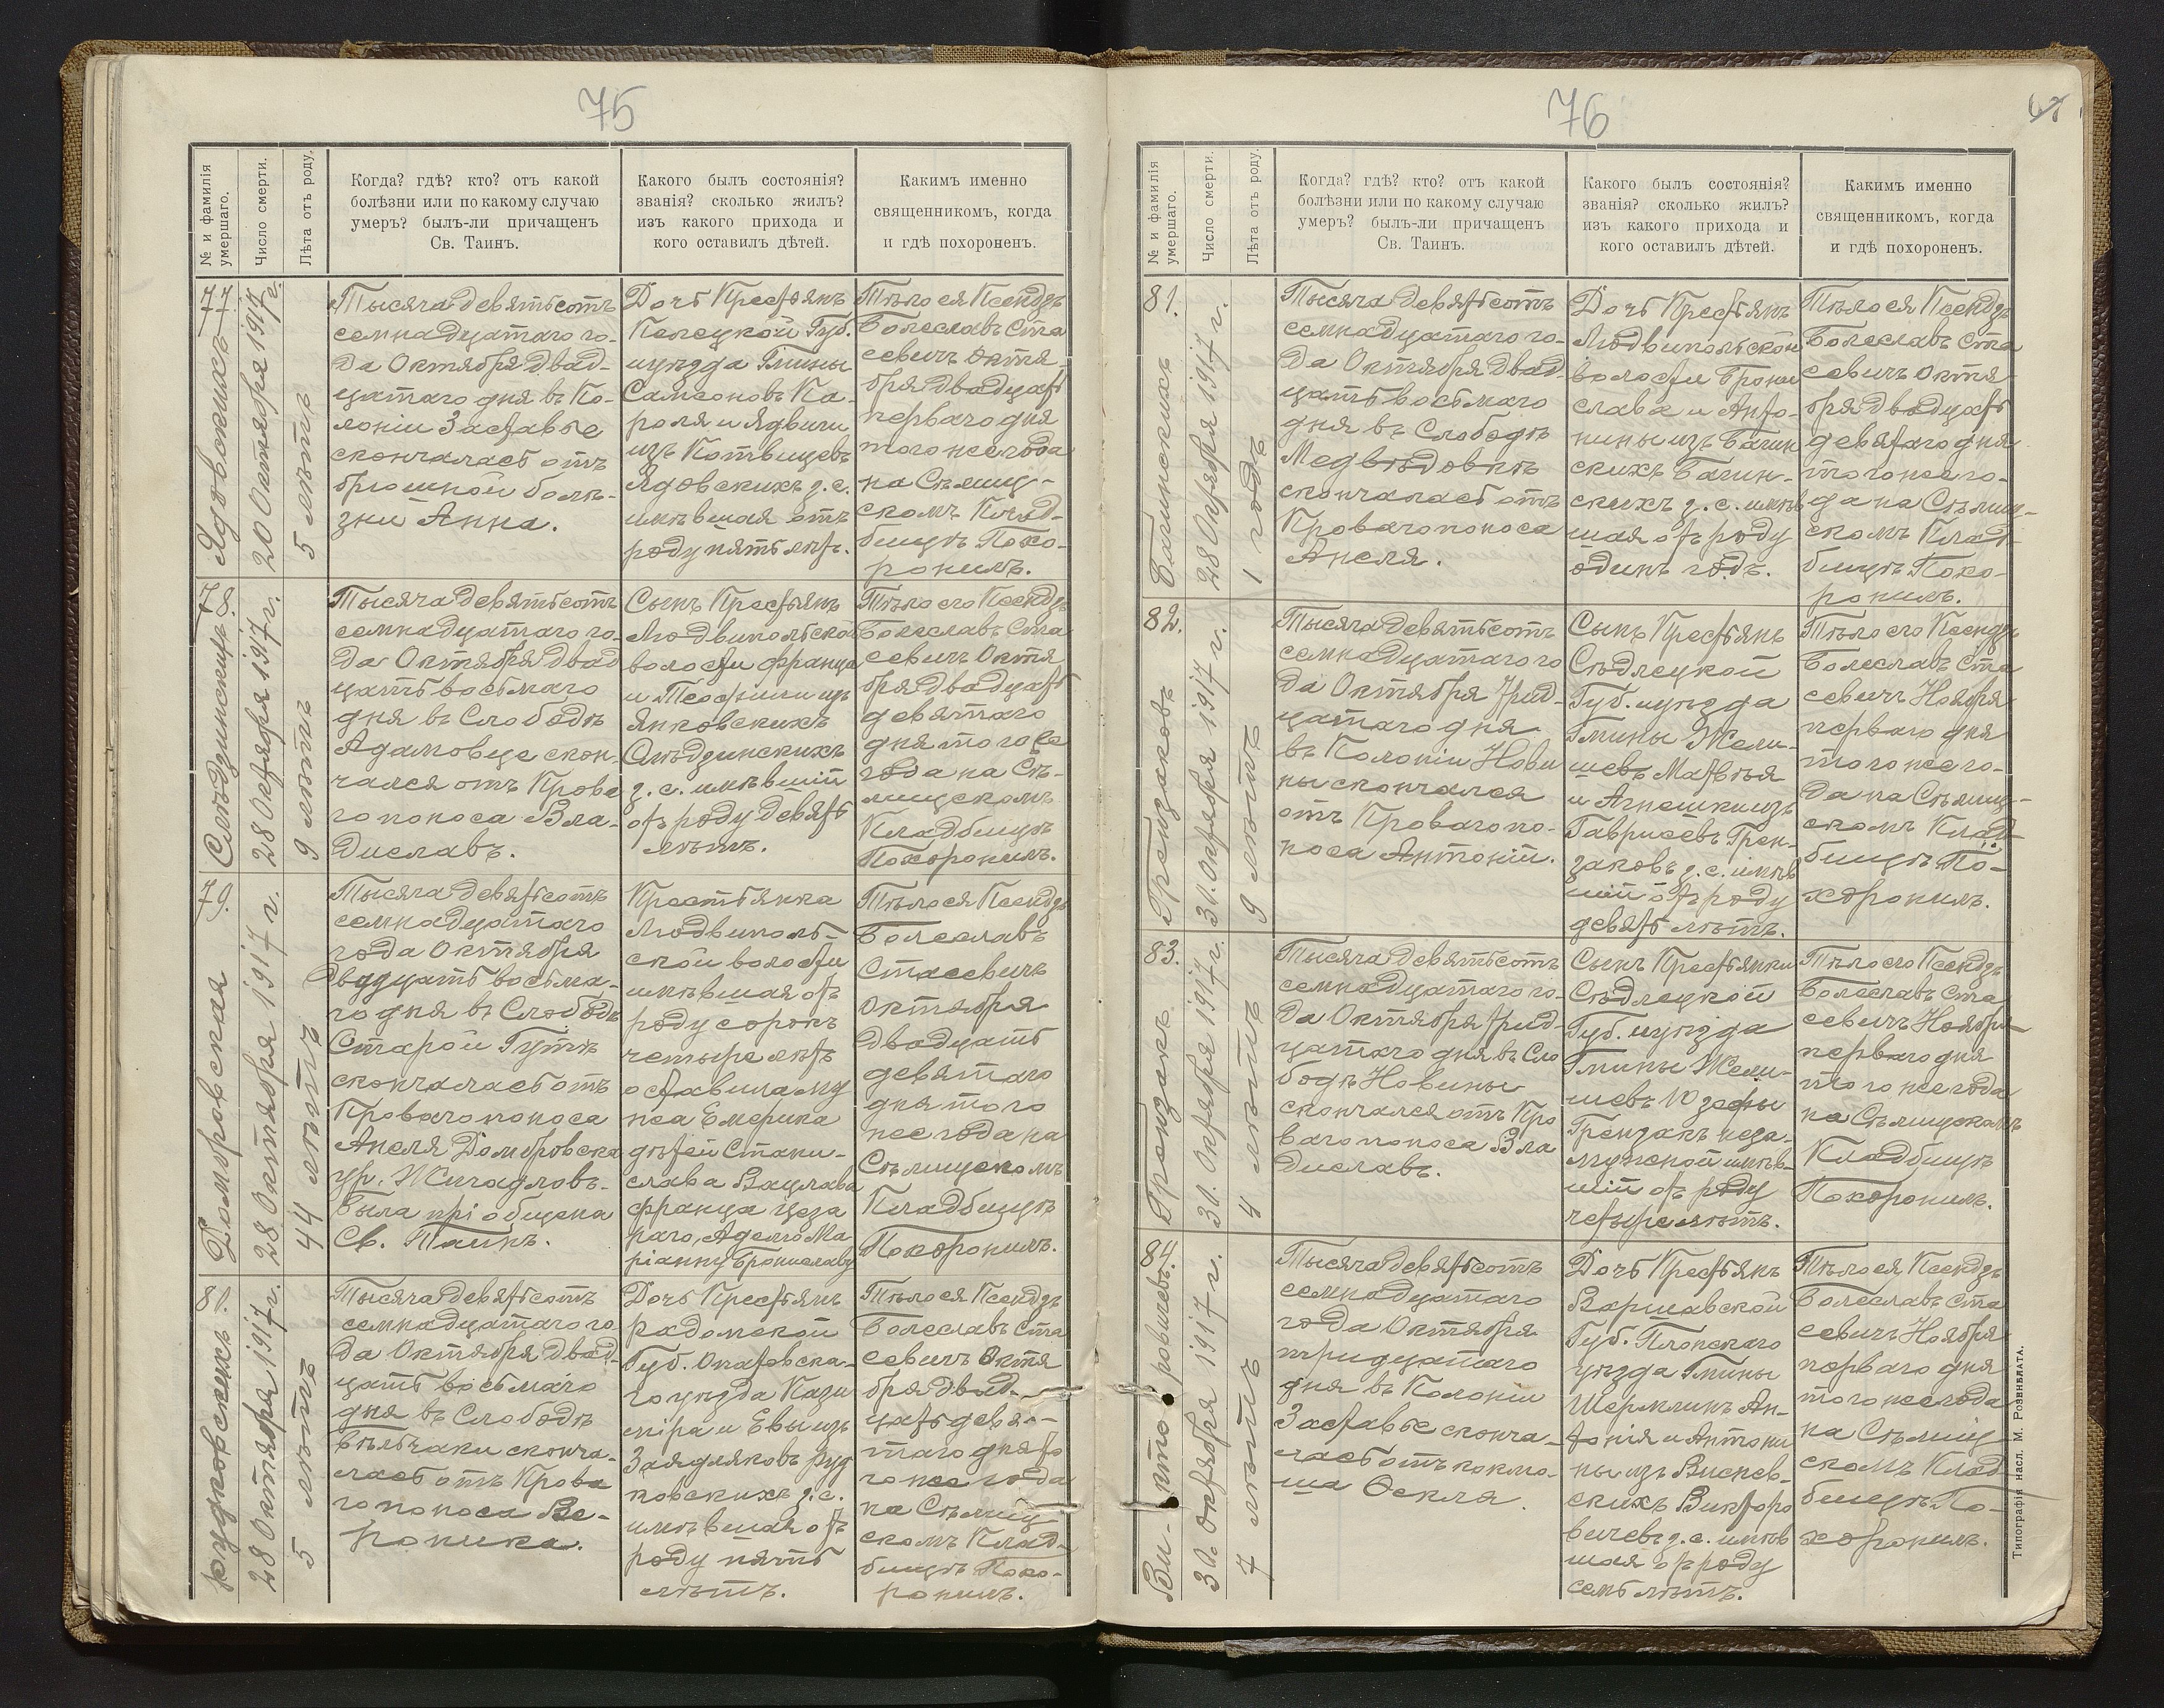 75
№ и фамилія
умершаго.
Число смерти.
Лѣта отъ роду.
Когда? гдѣ? кто? отъ какой
болѣзни или по какому случаю
умеръ? былъ-ли причащенъ
Св. Таинъ.
Какого былъ состоянія?
званія? сколько жилъ?
изъ какого прихода и
кого оставилъ дѣтей.
Какимъ именно
священникомъ, когда
и гдѣ похороненъ.
77.
Ядовскихъ
20 Октября 1917 г.
5 лѣтъ
Тысяча девятьсотъ
семнадцатаго го-
да Октября двад-
цатаго дня въ Ко-
лоніи Заставье
скончалась отъ
брюшной болѣ-
зни Анна.
Дочь Крестьянъ
Келецкой Губ.
иуѣзда Гмины
Самсоновъ Ка-
роля и Ядвиги
изъ
Ядовскихъ з. с.
имѣвшая отъ
роду пять лѣтъ.
Тѣло ея Ксендзъ
Болеславъ Ста
севичъ Октя-
бря двадцать
перваго дня
того же года
на Сѣлищ-
скомъ Клад-
бищѣ Похо-
ронилъ.
78.
28 Октября 1917 г.
9 лѣтъ
Тысяча девятьсотъ
семнадцатаго го-
да Октября двад
цать восьмаго
дня въ Слободѣ
Адамовце скон-
чался отъ Крова
го поноса Вла-
диславъ.
Сынъ Крестьянъ
Людвипольской
волости Франца
и Теофили изъ
Янковскихъ
Слѣдзинскихъ
з. с. имѣвшій
отъ роду девять
лѣтъ.
Тѣло его Ксендзъ
Болеславъ Ста
севичъ Октя
бря двадцать
девятаго
дня того же
года на Сѣ-
лищскомъ
Кладбищѣ
Похоронилъ.
79.
Домбровская
28 Октября 1917 г.
44 лѣтъ
Тысяча девятьсотъ
семнадцатаго
года Октября
двадцать восьма-
го дня въ Слободѣ
Старой Гутѣ
скончалась отъ
Кроваго поноса
Анеля Домбровска
ур.
Была пріобщена
Св. Таинъ.
Крестьянка
Людвиполь-
ской волости
имѣвшая отъ
роду сорокъ
четыре лѣтъ
оставила му
жа Емерика
дѣтей Стани-
слава Вацлава
Франца Цеза
раго, Аделю Ма
ріанну Брониславу
Тѣло ея Ксендзъ
Болеславъ
Стасевичъ
Октября
двадцать
девятаго
дня того
же года на
Сѣлищскомъ
Кладбищѣ
Похоронилъ.
80.
Рудковскихъ
28 Октября 1917 г.
5 лѣтъ
Тысяча девятьсотъ
семнадцатаго го
да Октября двад-
цать восьмаго
дня въ Слободѣ
Вѣльчаки сконча-
лась отъ Крова
го поноса Ве-
роника.
Дочь Крестьянъ
Радомской
Губ. Опатовска-
го уѣзда Кази
міра и Евы изъ
Руд
ковскихъ з. с.
имѣвшая отъ
роду пять
лѣтъ.
Тѣло ея Ксендзъ
Болеславъ Ста
севичъ Октя
бря двад-
цать девя-
таго дня то
го же года
на Сѣлищ-
скомъ Клад-
бищѣ Похо-
ронилъ.
76
№ и фамилія
умершаго.
Число смерти.
Лѣта отъ роду.
Когда? гдѣ? кто? отъ какой
болѣзни или по какому случаю
умеръ? былъ-ли причащенъ
Св. Таинъ.
Какого былъ состоянія?
званія? сколько жилъ?
изъ какого прихода и
кого оставилъ дѣтей.
Какимъ именно
священникомъ, когда
и гдѣ похороненъ.
81.
Багинскихъ
28 Октября 1917 г.
1 годъ
Тысяча девятьсотъ
семнадцатаго го-
да Октября двад-
цать восьмаго
дня въ Слободѣ
Медвѣдовкѣ
скончалась отъ
Кроваго поноса
Анеля.
Дочь Крестьянъ
Людвипольской
волости Брони
слава и Анто-
нины изъ Багин
скихъ Багин-
скихъ з. с. имѣв
шая отъ роду
одинъ годъ.
Тѣло ея Ксендзъ
Болеславъ Ста
севичъ Октя
бря двадцать
девятаго дня
того же го-
да на Сѣлищ-
скомъ Клад-
бищѣ Похо-
ронилъ.
82.
Грензаковъ
30. Октября 1917 г.
9 лѣтъ
Тысяча девятьсотъ
семнадцатаго го
да Октября трид-
цатаго дня
въ Колоніи Нови
ны скончался
отъ Кроваго по-
носа Антоній.
Сынъ Крестьянъ
Сѣдлецкой
Губ. иуѣзда
Гмины Жели-
шевъ Матвѣя
и Агнешки изъ
Гаврисевъ Грен-
заковъ з. с. имѣв
шій отъ роду
девять лѣтъ.
Тѣло его Ксендзъ
Болеславъ Ста
севичъ Ноября
перваго дня
того же го-
да на Сѣлищ-
скомъ Клад-
бищѣ По-
хоронилъ.
83.
Грензакъ
30. Октября 1917 г.
4 лѣтъ
Тысяча девятьсотъ
семнадцатаго го-
да Октября трид-
цатаго дня въ Сло
бодѣ Новины
скончался отъ Кро
ваго поноса Вла
диславъ.
Сынъ Крестьянки
Сѣдлецкой
Губ. иуѣзда
Гмины Жели-
шевъ Юзефы
Грензакъ неза-
мужней имѣв-
шій отъ роду
четыре лѣтъ.
Тѣло его Ксендзъ
Болеславъ Ста
севичъ Ноября
перваго дня
того же года
на Сѣлищскомъ
Кладбищѣ
Похоронилъ.
84.
Викторовичевъ
30. Октября 1917 г.
7 лѣтъ
Тысяча девятьсотъ
семнадцатаго
года Октября
тридцатаго
дня въ Колоніи
Заставье сконча-
лась отъ коклю-
ша Ѳекля.
Дочь Крестьянъ
Варшавской
Губ. Плонскаго
уѣзда Гмины
Ан-
тонія и Антони
ны изъ Виснев-
скихъ Викторо
вичевъ з. с. имѣв
шая отъ роду
семь лѣтъ.
Тѣло ея Ксендзъ
Болеславъ Ста
севичъ Ноября
перваго дня
того же года
на Сѣлищ-
скомъ Клад-
бищѣ По-
хоронилъ.
Типографія насл. М. Розенблата.